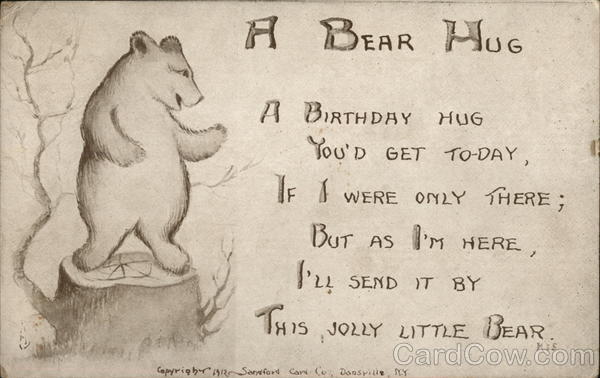 A BEAR HUG
A BIRTHDAY HUG
YOU'D GET TO-DAY,
IF I WERE ONLY THERE;
BUT AS I'M HERE,
I'LL SEND IT BY
THIS JOLLY LITTLE BEAR.
H.I.S.
Copyright 1912 Sandford Card Co., Dansville, N.Y.
CardCow.com